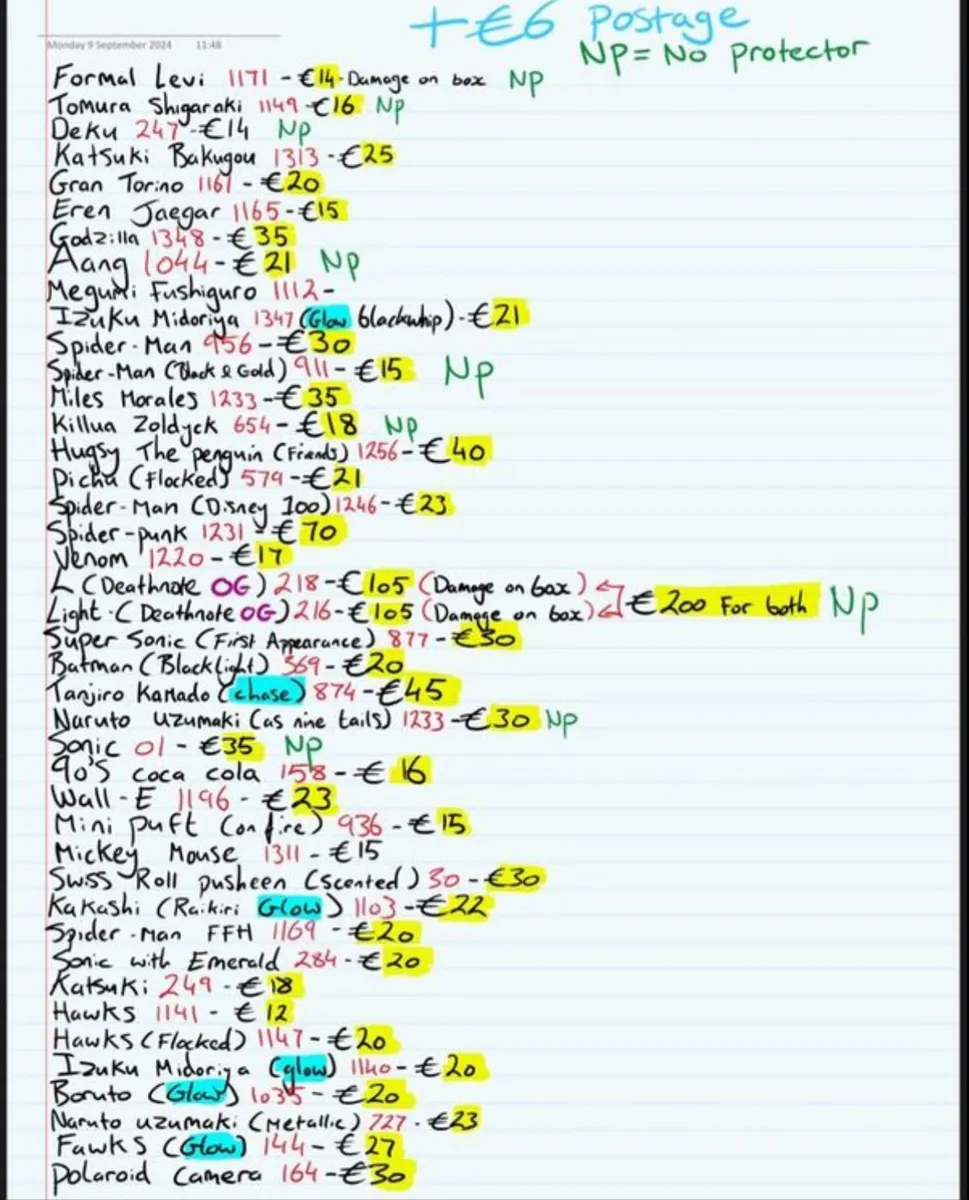 +€6 Postage
Monday 9 September 2024 11:48
NP = No Protector
Formal Levi 1171 - €14 - Damage on box NP
Tomura Shigaraki 1149 - €16 NP
Deku 247 - €14 NP
Katsuki Bakugou 1313 - €25
Gran Torino 1161 - €20
Eren Jaegar 1165 - €15
Godzilla 1348 - €35
Aang 1044 - €21 NP
Megumi Fushiguro 1112 -
Izuku Midoriya 1347 (Glow blackwhip) - €21
Spider-Man 956 - €30
Spider-Man (Black & Gold) 911 - €15 NP
Miles Morales 1233 - €35
Killua Zoldyck 654 - €18 NP
Hugsy The penguin (Friends) 1256 - €40
Pichu (Flocked) 579 - €21
Spider-Man (Disney 100) 1246 - €23
Spider-punk 1231 - €70
Venom 1220 - €17
L (Deathnote OG) 218 - €105 (Damage on box)
Light (Deathnote OG) 216 - €105 (Damage on box) €200 For both NP
Super Sonic (First Appearance) 877 - €30
Batman (Blacklight) 369 - €20
Tanjiro Kamado (chase) 874 - €45
Naruto Uzumaki (as nine tails) 1233 - €30 NP
Sonic 01 - €35 NP
90's coca cola 158 - €16
Wall-E 1196 - €23
Mini puft (on fire) 936 - €15
Mickey Mouse 1311 - €15
Swiss Roll pusheen (scented) 30 - €30
Kakashi (Raikiri Glow) 1103 - €22
Spider-Man FFH 1169 - €20
Sonic with Emerald 284 - €20
Katsuki 249 - €18
Hawks 1141 - €12
Hawks (Flocked) 1147 - €20
Izuku Midoriya (glow) 1140 - €20
Boruto (Glow) 1035 - €20
Naruto uzumaki (Metallic) 727 - €23
Fawks (Glow) 144 - €27
Polaroid Camera 164 - €30